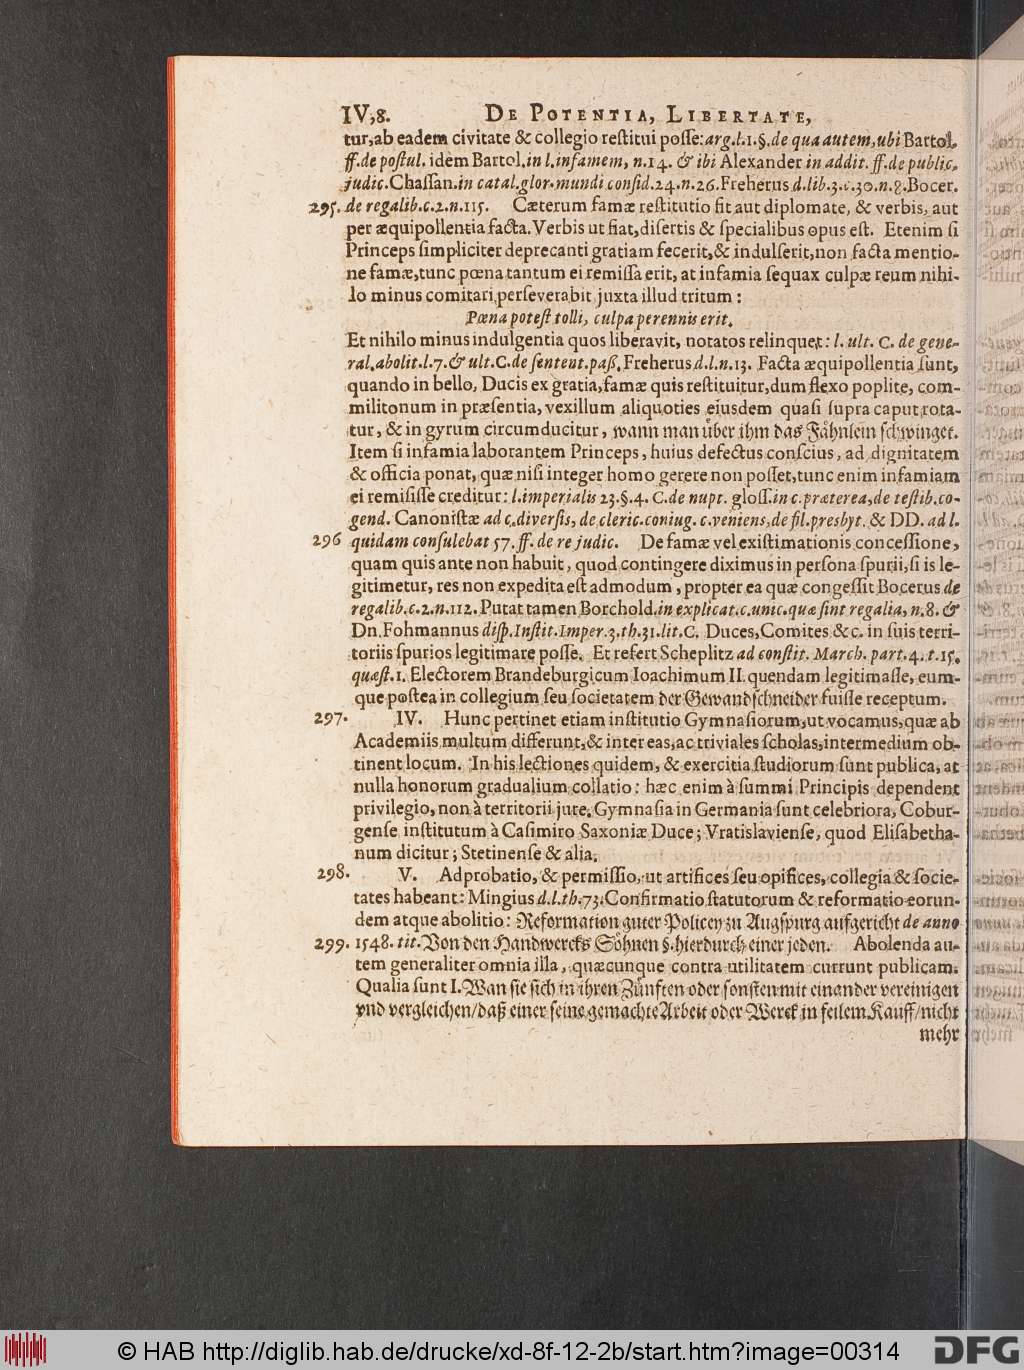 IV,8. DE POTENTIA, LIBERTATE,
tur,ab eadem civitate & collegio restitui posse:arg.l.1.§.de qua autem,ubi Bartol.
ff.de postul. idem Bartol.in l.infamem, n.14. & ibi Alexander in addit. ff.de public.
judic.Chassan.in catal.glor.mundi consid.24.n.26.Freherus d.lib.3.c.30.n.8.Bocer.
295. de regalib.c.2.n.115. Cæterum famæ restitutio fit aut diplomate, & verbis, aut
per æquipollentia facta.Verbis ut fiat,disertis & specialibus opus est. Etenim si
Princeps simpliciter deprecanti gratiam fecerit,& indulserit,non facta mentio-
ne famæ,tunc pœna tantum ei remissa erit, at infamia sequax culpæ reum nihi-
lo minus comitari perseverabit juxta illud tritum:
Pœna potest tolli, culpa perennis erit.
Et nihilo minus indulgentia quos liberavit, notatos relinquet: l. ult. C. de gene-
ral.abolit.l.7.& ult.C.de sentent.paß.Freherus d.l.n.13. Facta æquipollentia sunt,
quando in bello, Ducis ex gratia,famæ quis restituitur,dum flexo poplite, com-
militonum in præsentia, vexillum aliquoties ejusdem quasi supra caput rota-
tur, & in gyrum circumducitur, wann man über ihm das Fähnlein schwinget.
Item si infamia laborantem Princeps, huius defectus conscius, ad dignitatem
& officia ponat, quæ nisi integer homo gerere non posset,tunc enim infamiam
ei remisisse creditur: l.imperialis 23.§.4. C.de nupt. gloss.in c.præterea,de testib.co-
gend. Canonistæ ad c.diversis, de cleric.coniug. c.veniens,de fil.presbyt. & DD. ad l.
296 quidam consulebat 57. ff. de re judic. De famæ vel existimationis concessione,
quam quis ante non habuit, quod contingere diximus in persona spurii,si is le-
gitimetur, res non expedita est admodum, propter ea quæ congessit Bocerus de
regalib.c.2.n.112.Putat tamen Borchold.in explicat.c.unic.quæ sint regalia, n.8. &
Dn.Fohmannus disp.Instit.Imper.3.th.31.lit.C. Duces,Comites &c. in suis terri-
toriis spurios legitimare posse. Et refert Scheplitz ad constit. March. part.4.t.15.
quæst.1. Electorem Brandeburgicum Ioachimum II. quendam legitimasse, eum-
que postea in collegium seu societatem der Gewandschneider fuisse receptum.
297. IV. Hunc pertinet etiam institutio Gymnasiorum,ut vocamus,quæ ab
Academiis multum differunt,& inter eas,ac triviales scholas,intermedium ob-
tinent locum. In his lectiones quidem, & exercitia studiorum sunt publica, at
nulla honorum gradualium collatio: hæc enim à summi Principis dependent
privilegio, non à territorii jure. Gymnasia in Germania sunt celebriora, Cobur-
gense institutum à Casimiro Saxoniæ Duce; Vratislaviense, quod Elisabetha-
num dicitur; Stetinense & alia.
298. V. Adprobatio, & permissio, ut artifices seu opifices, collegia & socie-
tates habeant: Mingius d.l.th.73.Confirmatio statutorum & reformatio eorun-
dem atque abolitio: Reformation guter Policey zu Augspurg aufgericht de anno
299. 1548. tit.Von den Handwercks Söhnen §.hierdurch einer jeden. Abolenda au-
tem generaliter omnia illa, quæcunque contra utilitatem currunt publicam.
Qualia sunt I.Wan sie sich in ihren Zünften oder sonsten mit einander vereinigen
vnd vergleichen/daß einer seine gemachte Arbeit oder Werck in feilem Kauff/nicht
mehr
© HAB http://diglib.hab.de/drucke/xd-8f-12-2b/start.htm?image=00314
DFG